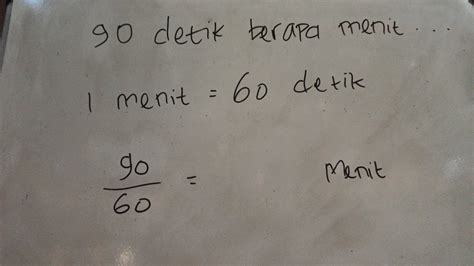 90 detik berapa menit ...
1 menit = 60 detik
90/60 = Menit